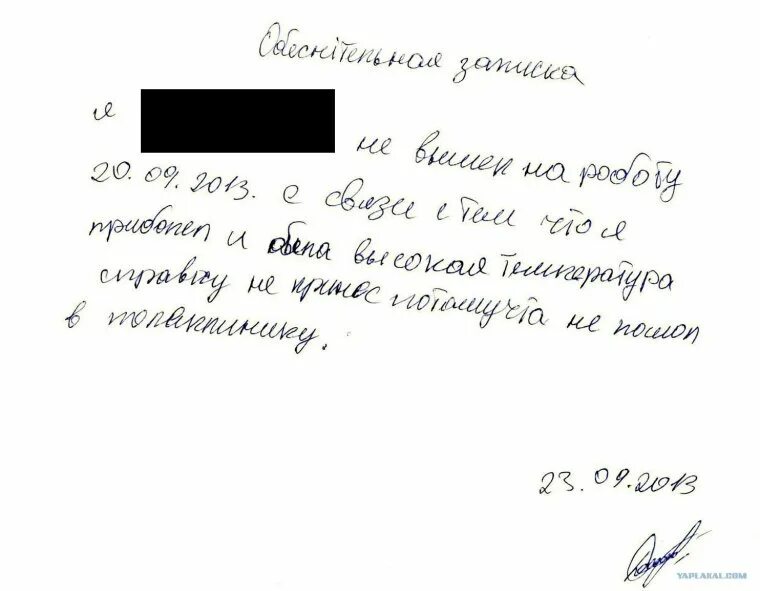 Обеснітельная записка
я
не вышел на роботу
20.09.2013. с связи с тем что я
приболел и была высокая температура
справку не принёс потамучта не пошол
в полаклинику.
23.09.2013
YAPLAKAL.COM